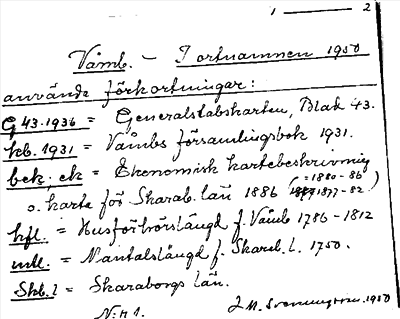 1 — 2
Våmb. – I ortnamnen 1950
använda förkortningar:
G 43.1936 = Generalstabskartan, Blad 43.
kb. 1931 = Våmbs församlingsbok 1931.
bek; ek = Ekonomisk kartebeskrivning
(= 1880-86
o. karte för Skarab. län 1886 1877-82)
hfl. = Husförhörslängd f. Våmb 1786-1812
mtl. = Mantalslängd f. Skarab. L. 1750.
Skb. l = Skaraborgs län.
N:r 1.
1950